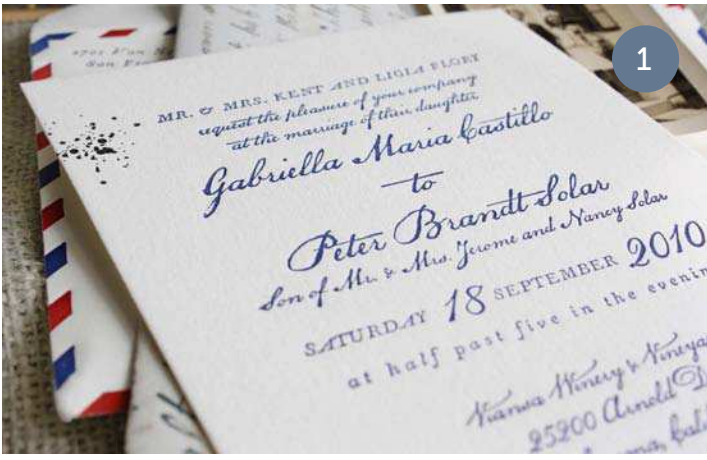 1
MR. & MRS. KENT AND LIGIA FLORY
request the pleasure of your company
at the marriage of their daughter
Gabriella Maria Castillo
to
Peter Brandt Solar
Son of Mr. & Mrs. Jerome and Nancy Solar
SATURDAY 18 SEPTEMBER 2010
at half past five in the evenin
Viansa Winery & Vineya
25200 Arnold D